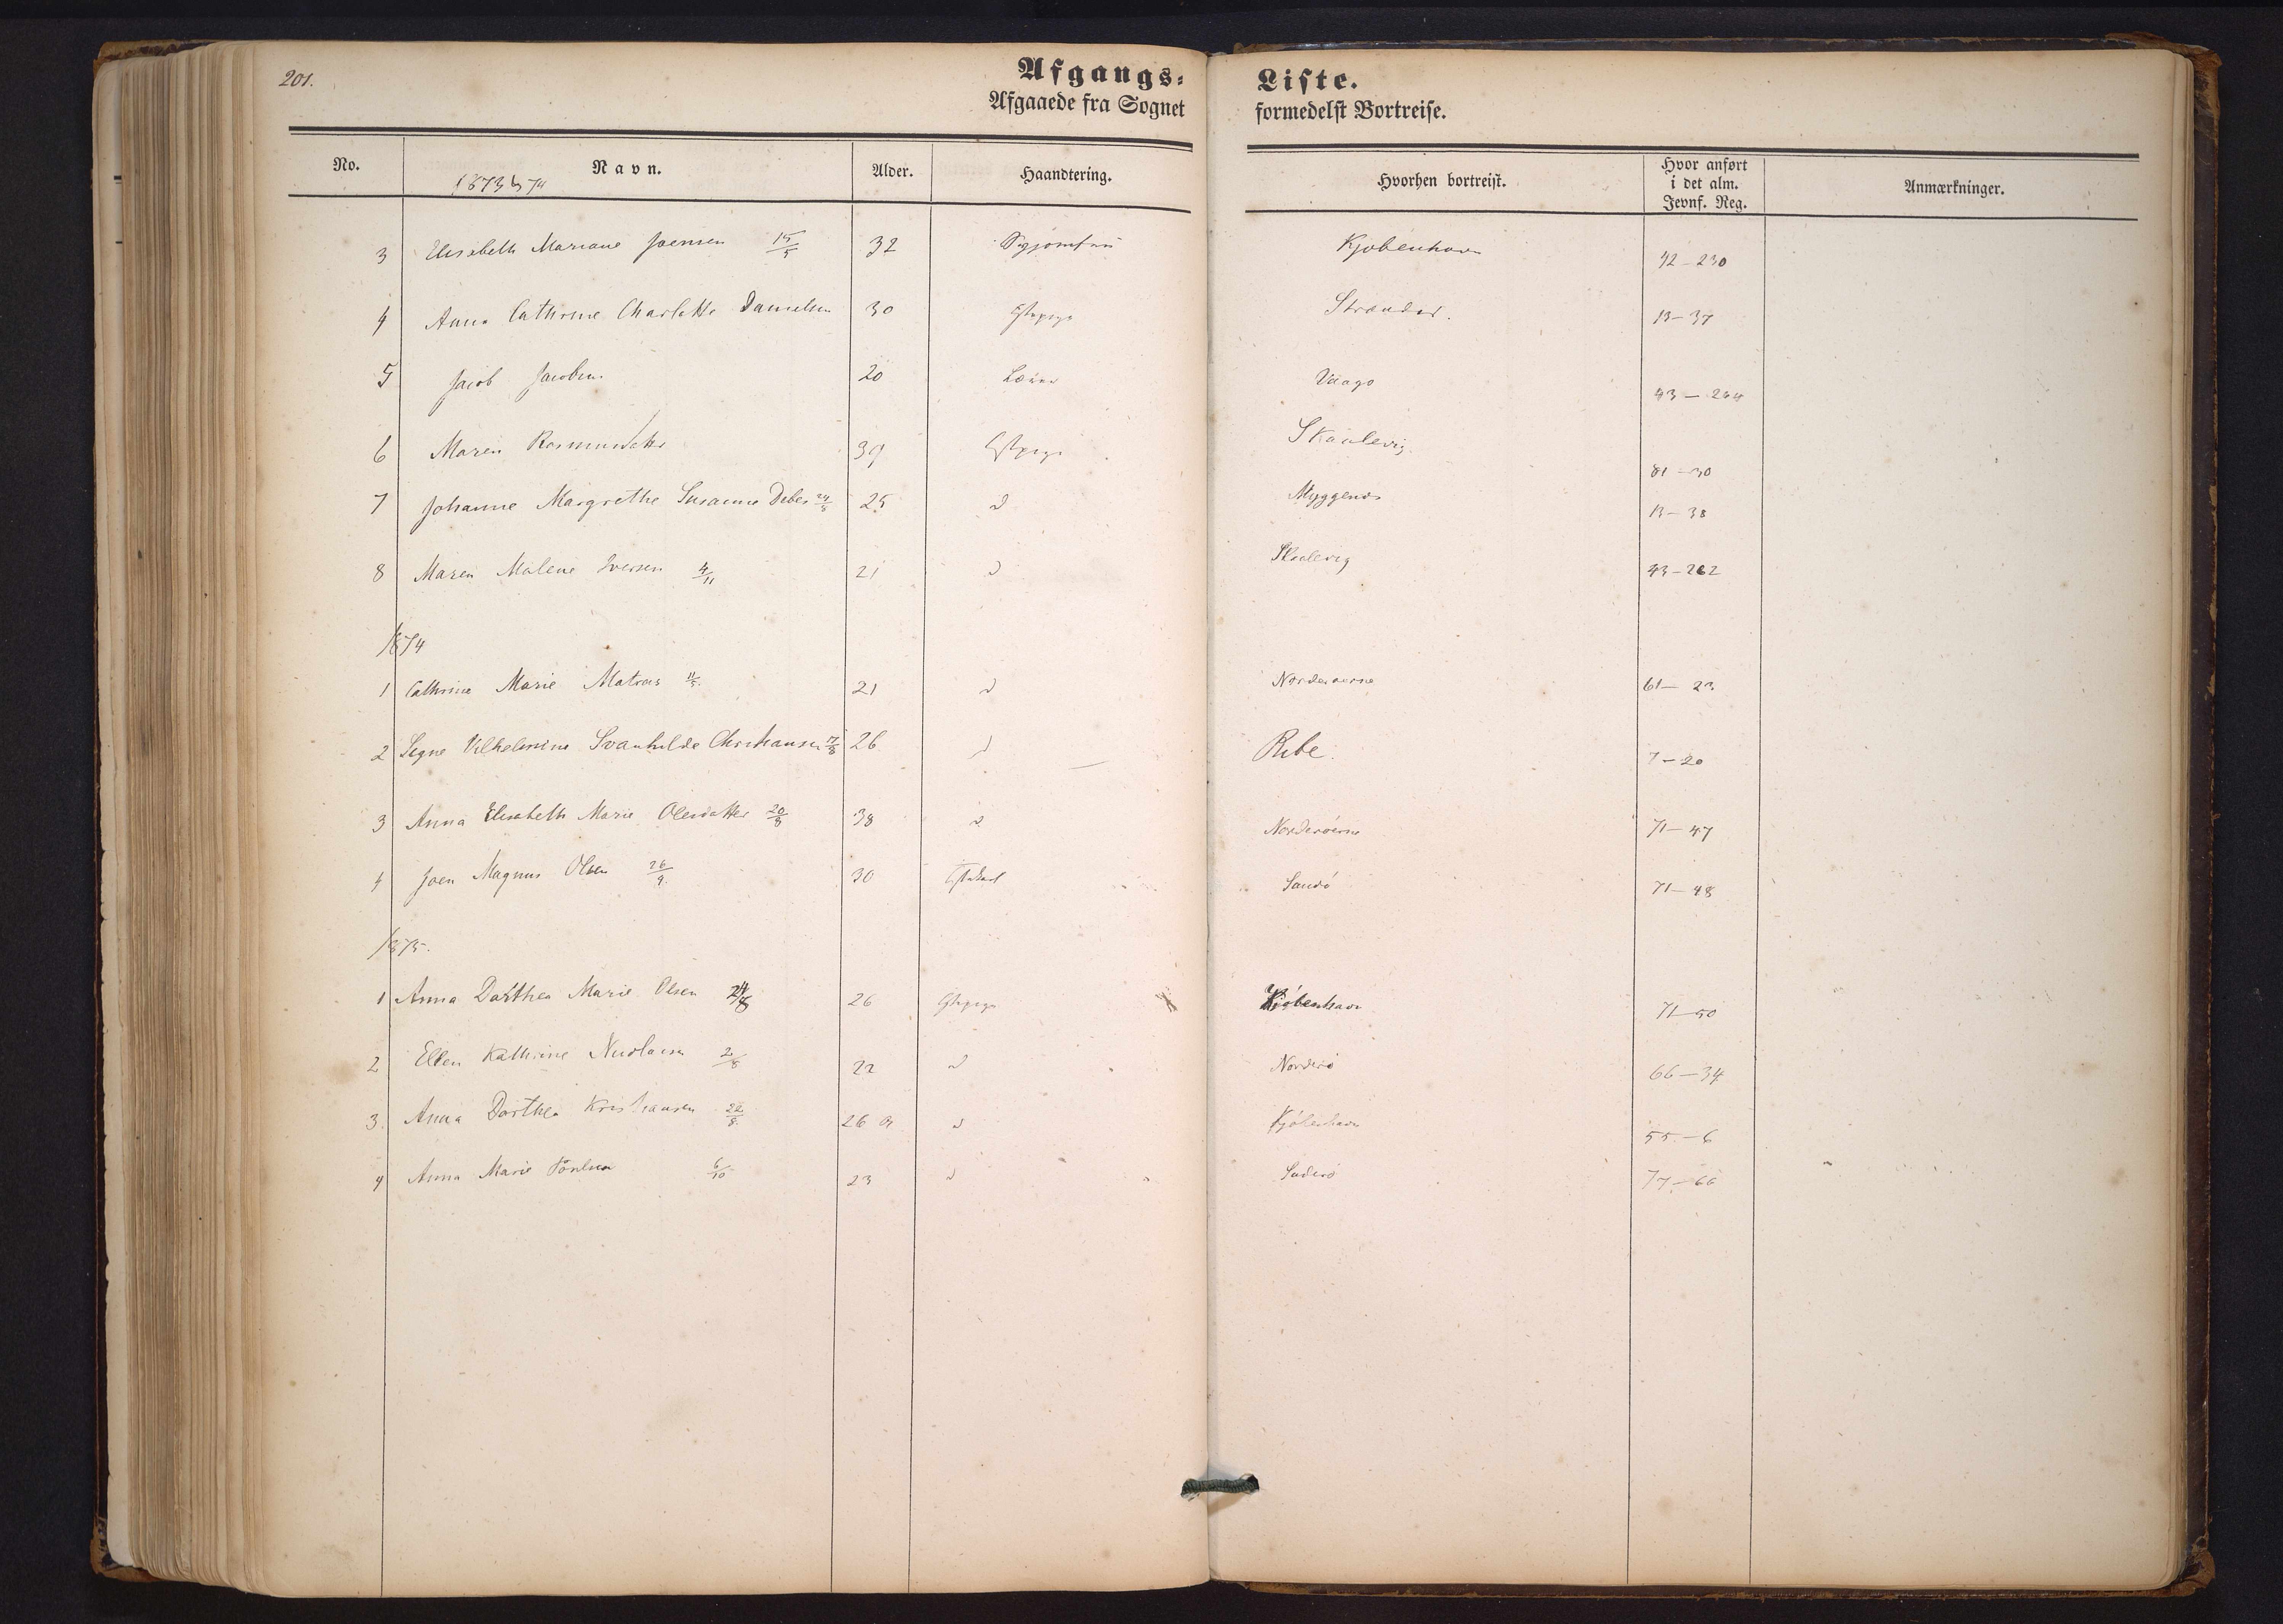 201.
Afgangs-Liste.
Afgaaede fra Sognet formedelst Bortreise.
No. Navn. Alder. Haandtering. Hvorhen bortreist. Hvor anført i det alm. Jevnf. Reg. Anmærkninger.
1873 74
3 Elisabeth Mariane Joensen 15/5 32 Kjøbenhavn 42-230
4 Anna Cathrine Charlotte Danielsen 30 Strander. 13-37
5 Jacob Jacobsen 20 Vaagø 43-244
6 Maren Rasmusdatter 39 Skaalevig 81-30
7 Johanne Margrethe Susanne Debes 24/8 25 d Myggenæs 13-38
8 Maren Malene Iversen 4/11 21 d Skaalevig 43-262
1874
1 Cathrine Marie Matras 11/5 21 d Norderøerne 61-23
2 Signe Vilhelmine Svanhilde Christiansen 17/8 26 d Ribe. 7-20
3 Anna Elisabeth Marie Olesdatter 20/8 38 d Norderøerne 71-47
4 Joen Magnus Olsen 26/9. 30 Sandø 71-48
1875.
1 Anna Dorthea Marie Olsen 24/8 26 Kjøbenhavn 71-50
2 Ellen Kathrine Nicolaisen 2/8 22 d Norderø 66-34
3. Anna Dorthea Kristiansen 22/8 26 d Kjøbenhavn 55-6
4 Anna Marie Poulsen 6/10 23 d Suderø 77-66